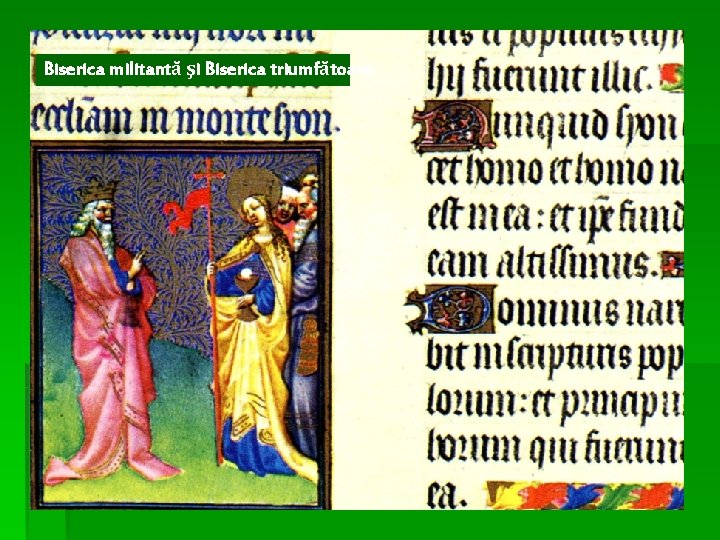 Biserica militantă şi Biserica triumfătoare
eccl̄iam in monte syon.
hij fuerunt illic.
Nunquid syon
cet homo et homo n
est in ea : et ip̄e fund
eam altissimus.
Dominus nar
bit in scripturis pop
lorum : et princip
horum qui fuerunt
ea.